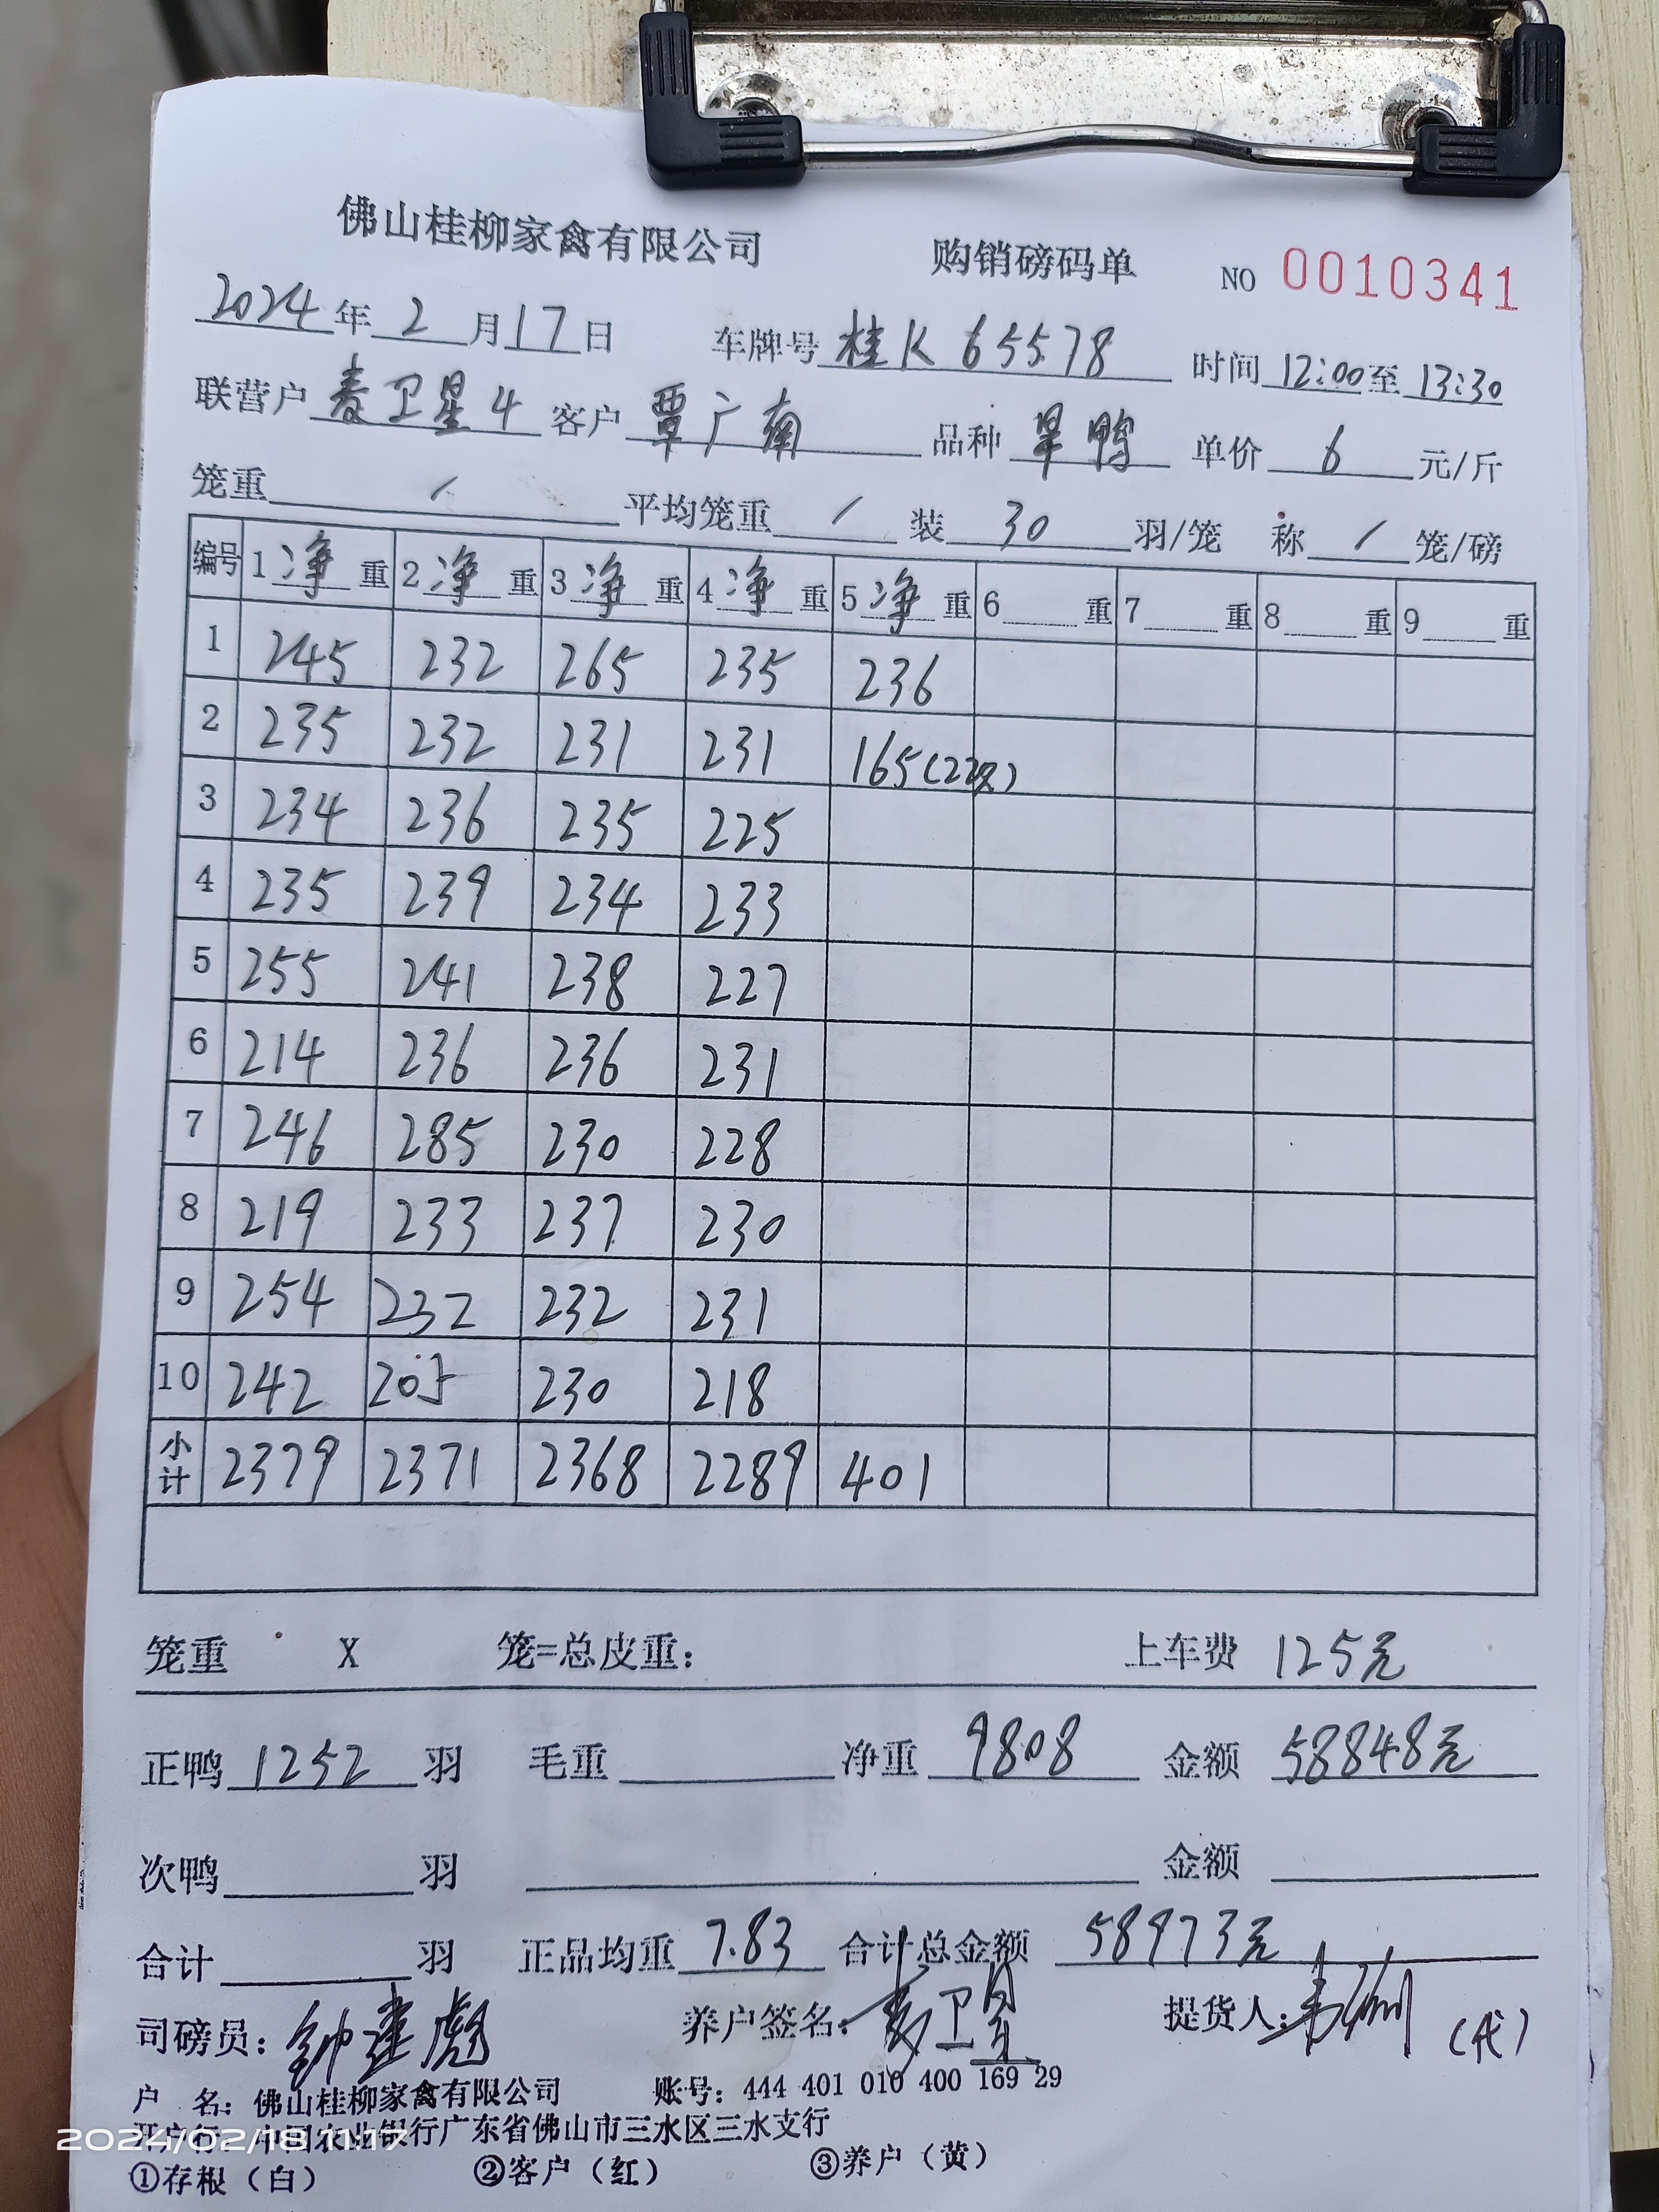 佛山桂柳家禽有限公司 购销磅码单 NO 0010341
2024年2月17日 车牌号 桂K 65578 时间 12:00至 13:30
联营户 麦卫星4 客户 覃广南 品种 旱鸭 单价 6 元/斤
笼重 / 平均笼重 / 装 30 羽/笼 称 / 笼/磅
编号 1净重 2净重 3净重 4净重 5净重 6 重 7 重 8 重 9 重
1 245 232 265 235 236
2 235 232 231 231 165(22只)
3 234 236 235 225
4 235 239 234 233
5 255 241 238 227
6 214 236 236 231
7 246 285 230 228
8 219 233 237 230
9 254 232 232 231
10 242 205 230 218
小计 2379 2371 2368 2289 401
笼重 X 笼=总皮重: 上车费 125元
正鸭 1252 羽 毛重 净重 9808 金额 58848元
次鸭 羽 金额
合计 羽 正品均重 7.83 合计总金额 58973元
司磅员: 钟建彪 养户签名: 麦卫星 提货人: (代)
户 名: 佛山桂柳家禽有限公司 账号: 444 401 010 400 169 29
开户行: 中国农业银行广东省佛山市三水区三水支行
2024/02/18 11:17
①存根（白） ②客户（红） ③养户（黄）